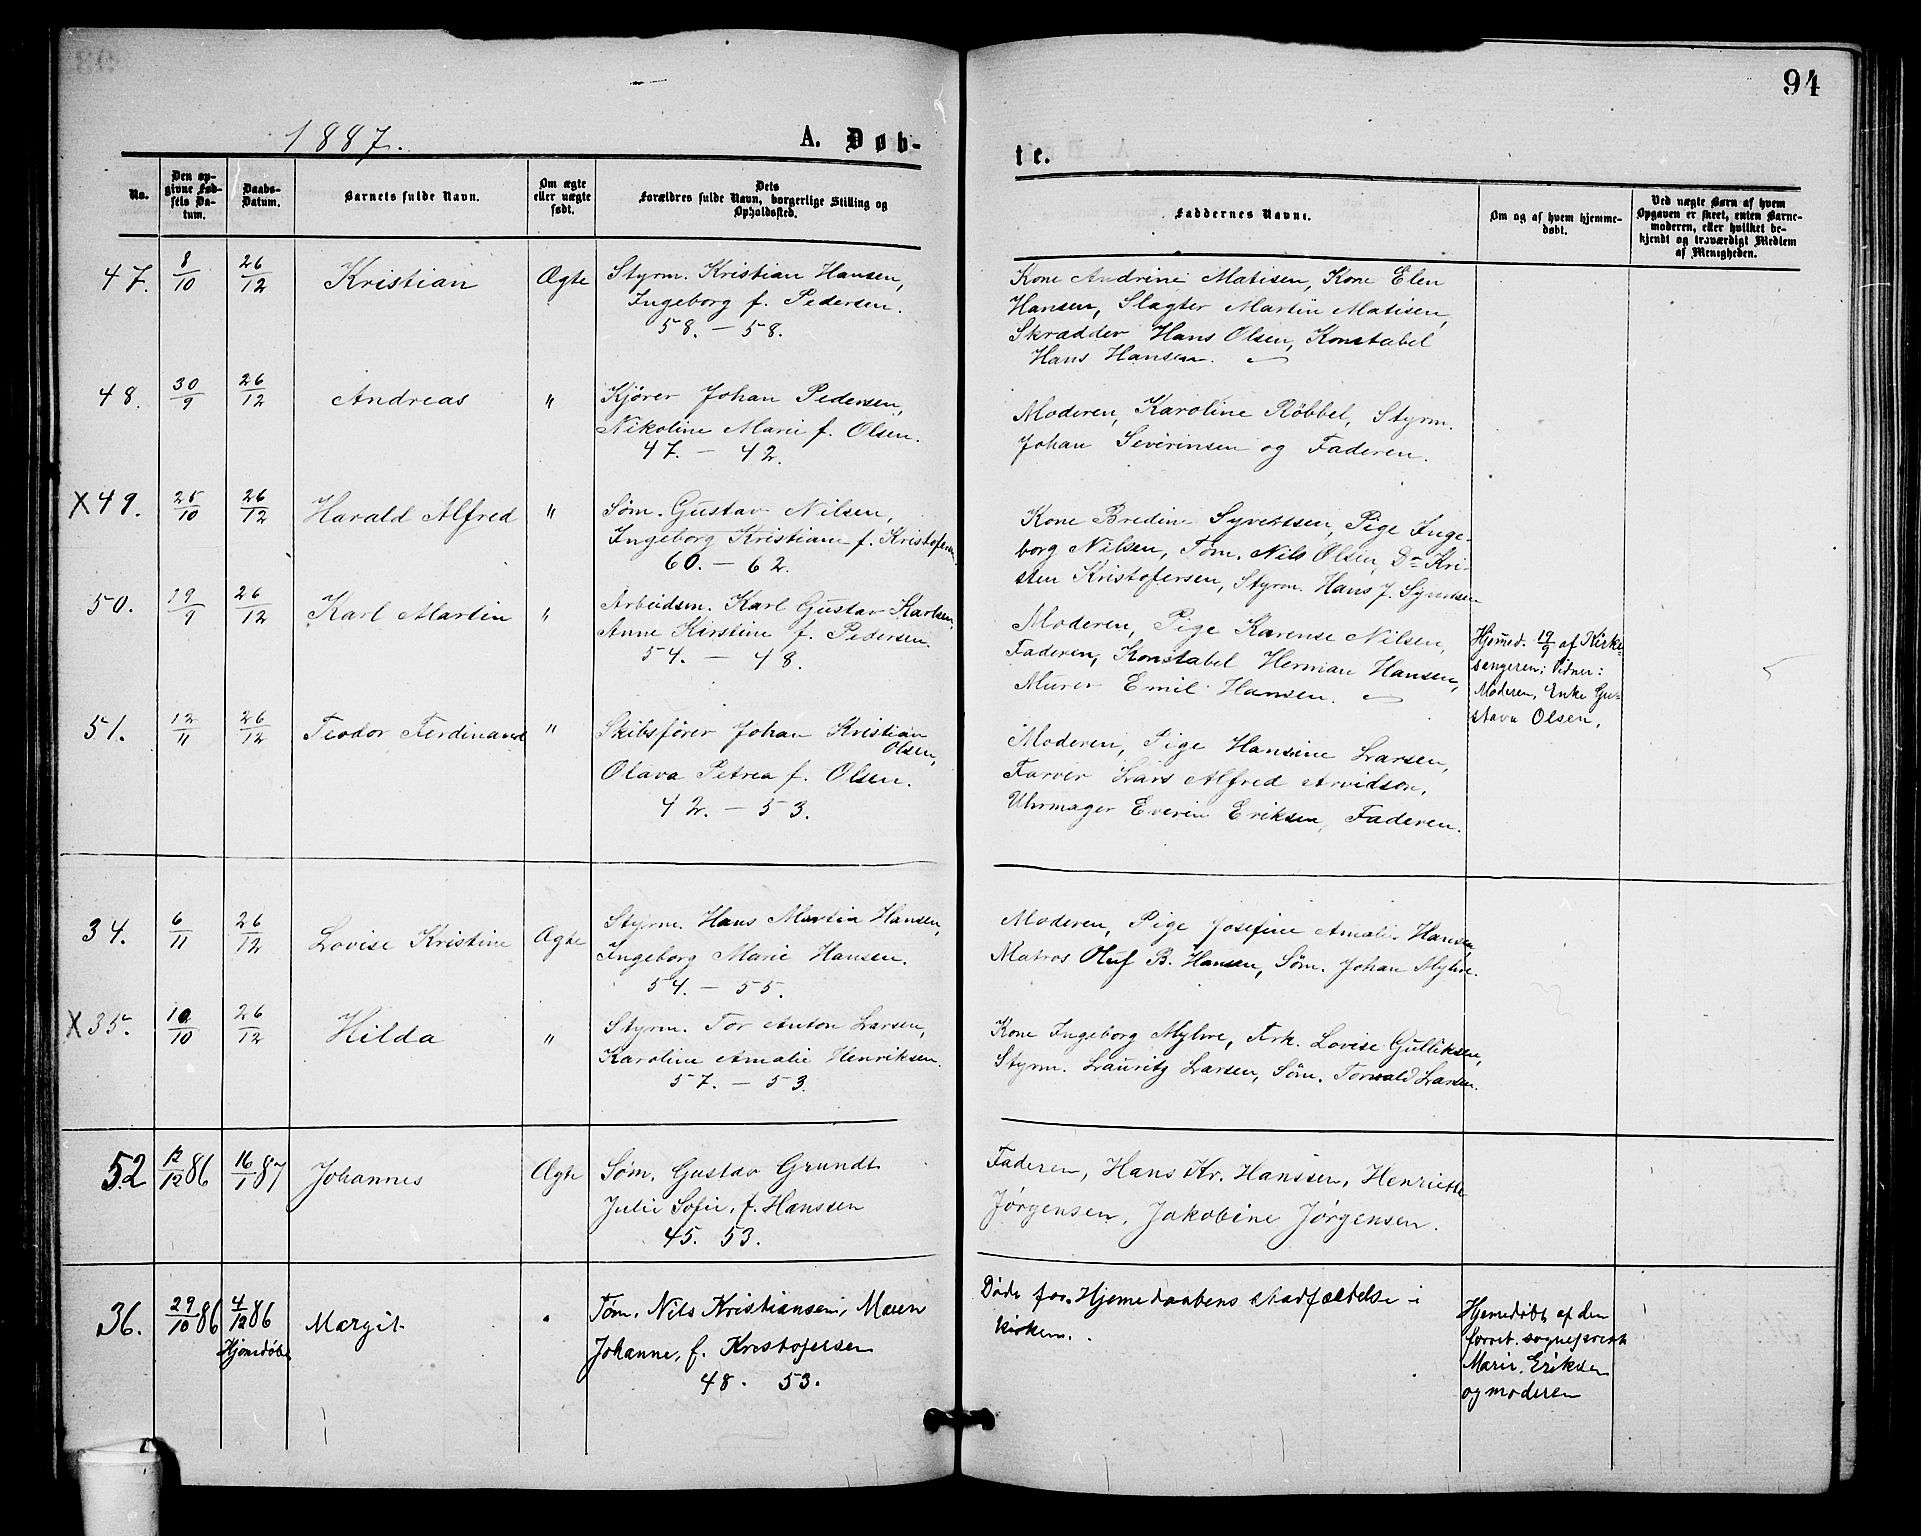 94
1887.
A. Døb-
te.
No.
Den op-
givne Fød-
sels Da-
tum.
Daabs-
Datum.
Barnets fulde Navn.
Om ægte
eller uægte
født.
Dets
Forældres fulde Navn, borgerlige Stilling og
Opholdssted.
Faddernes Navne.
Om og af hvem hjemme-
døbt.
Ved uægte Børn af hvem
Opgaven er skeet, enten Barne-
moderen, eller hvilket be-
kjendt og troværdigt Medlem
af Menigheden.
47. 8/10 26/12 Kristian Ægte Styrm. Kristian Hansen,
Ingeborg f. Pedersen.
58. – 58.
Kone Andrine Matisen, Kone Elen
Hansen, Slagter Martin Matisen,
Skrædder Hans Olsen, Konstabel
Hans Hansen.
48. 30/9 26/12 Andreas " Kjører Johan Pedersen,
Nikoline Marie f. Olsen.
47. – 42.
Moderen, Karoline Röbbel, Styrm.
Johan Severinsen og Faderen.
X 49. 25/10 26/12 Harald Alfred " Søm. Gustav Nilsen,
Ingeborg Kristiane f. Kristofersen
60. – 62.
Kone Bredine Syvertsen, Pige Inge-
borg Nilsen, Tøm. Nils Olsen, Do Kri-
sten Kristofersen, Styrm. Hans J. Syvertsen
50. 19/9 26/12 Karl Martin " Arbeidsm. Karl Gustav Karlsen,
Anne Kirstine f. Pedersen.
54. – 48.
Moderen, Pige Karense Nilsen,
Faderen, Konstabel Herman Hansen,
Murer Emil Hansen.
Hjemmed. 19/9 af Kirke-
sangeren; Vidner:
Moderen, Enke Gu-
stava Olsen.
51. 12/11 26/12 Teodor Ferdinand " Skibsfører Johan Kristian
Olsen,
Olava Petrea f. Olsen.
42. – 53.
Moderen, Pige Hansine Larsen,
Farver Lars Alfred Arvidson,
Uhrmager Everin Eriksen, Faderen.
34. 6/11 26/12 Lovise Kristine Ægte Styrm. Hans Martin Hansen,
Ingeborg Marie Hansen.
54. – 55.
Moderen, Pige Josefine Amalie Hansen,
Matros Oluf B. Hansen, Søm. Johan Myhre.
X 35. 10/10 26/12 Hilda " Styrm. Tor Anton Larsen,
Karoline Amalie Henriksen.
57. – 53.
Kone Ingeborg Myhre, Frk. Lovise Gulliksen,
Styrm. Lauritz Larsen, Søm. Torvald Larsen.
52 12/12 86 16/1 87 Johannes Ægte Søm. Gustav Grundt
Julie Sofie, f. Hanssen
45. 53.
Faderen, Hans Kr. Hanssen, Henriette
Jørgensen, Jakobine Jørgensen.
36. 29/10 86 4/12 86 Margit Tøm. Nils Kristiansen, Maren
Hjemedøbt
Johanne, f. Kristofersen
48. 53.
Døde før Hjemedaabens stadfæstelse i
kirken.
Hjemedøbt af den
forret. sogneprest
Marie Eriksen
og moderen